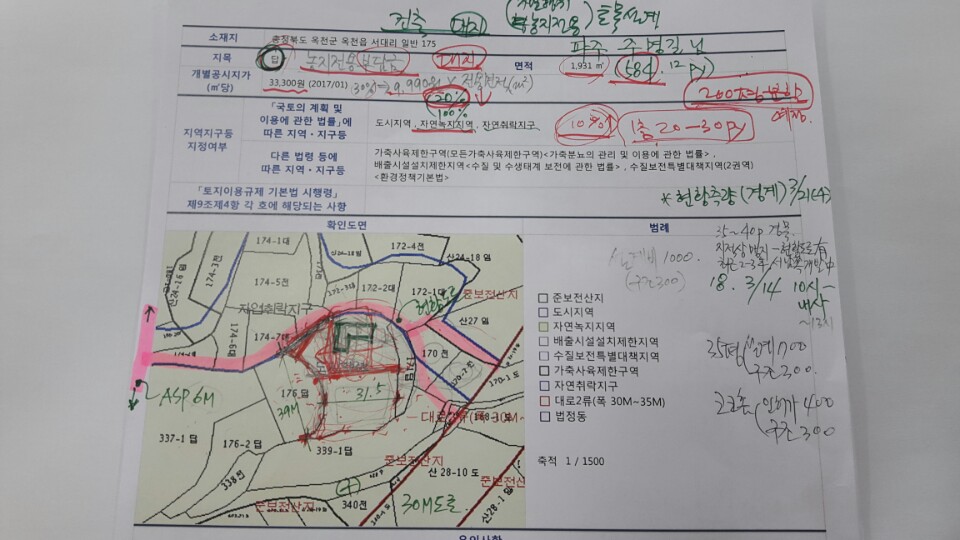 건축 대지 농지전용 토목설계
소재지 충청북도 옥천군 옥천읍 서대리 일반 175
파주
지목 답 농지전용부담금 대지 면적 1,931 ㎡ (584.12py)
개별공시지가 (㎡당) 33,300원 (2017/01) (30%=9,990원 × 전용면적(㎡)
200평
예정
20%
100%
지역지구등 지정여부
「국토의 계획 및 이용에 관한 법률」에 따른 지역ㆍ지구등
도시지역 , 자연녹지지역 , 자연취락지구
1층 20-30py
다른 법령 등에 따른 지역ㆍ지구등
가축사육제한구역(모든가축사육제한구역)<가축분뇨의 관리 및 이용에 관한 법률> ,
배출시설설치제한지역<수질 및 수생태계 보전에 관한 법률> , 수질보전특별대책지역(2권역)
<환경정책기본법>
「토지이용규제 기본법 시행령」
제9조제4항 각 호에 해당되는 사항
* 현황측량(경계) 3/21(수)
확인도면
범례
35~40p 건물
설계비 1000.
(구조300)
18. 3/14 10시-
내사
~13시
준보전산지
도시지역
자연녹지지역
배출시설설치제한지역
수질보전특별대책지역
가축사육제한구역
자연취락지구
대로2류(폭 30M~35M)
법정동
35평 설계 700
구조 300.
인허가 400
구조 300
축척 1 / 1500
174-1대
172-4전
174-3전
산24-16 임
산24-18 임
174-5전
172-2대
172-1
준보전산지
자연취락지구
현황도로
산27 임
174-7
174-6대
170 전
170-2
170-1 도
171답
ASP 6M
176 답
31.5
39M
대로2류(폭 30M~
168-3
337-1 답
176-2 답
339-1답
준보전산지
산 28-10 도
준보전산지
338전
준보전산지
340전
30M도로
산28-1 임
유의사항